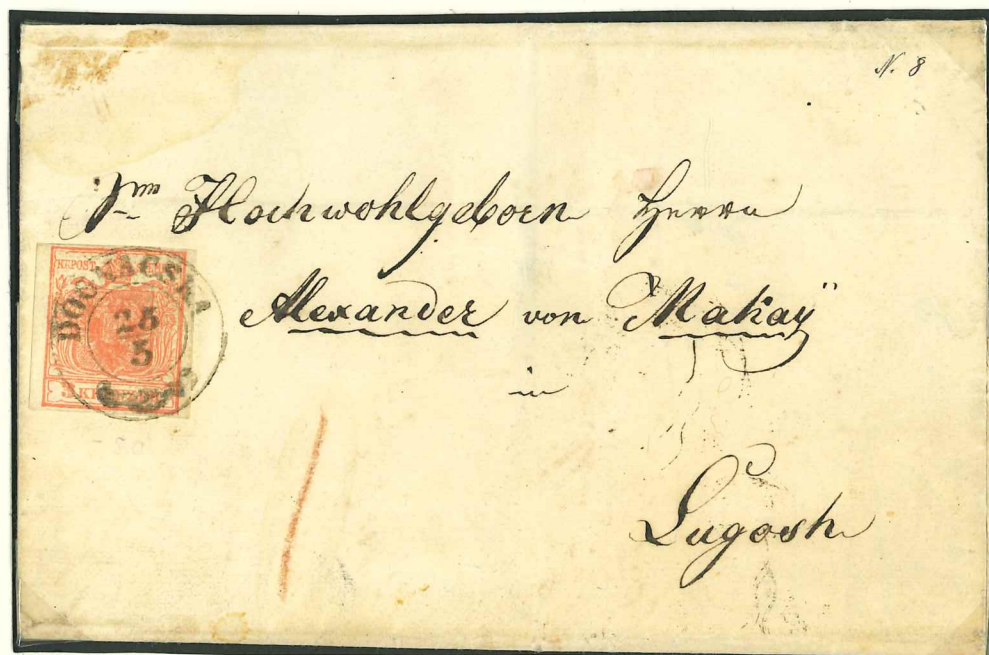 N. 8
Hochwohlgeborn Herrn
Alexander von Makaÿ
in
Lugosh
DOGNACSKA
25
5
3 KREUZER